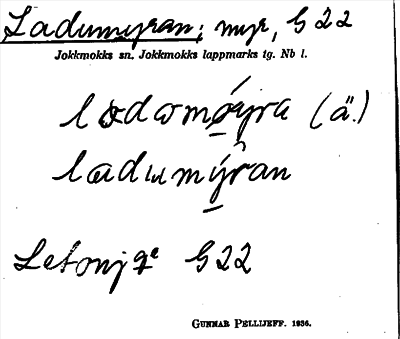 Ladumyran; myr, G 22
Jokkmokks sn. Jokkmokks lappmarks tg. Nb l.
(ä.)
ladumýran
G 22
GUNNAR PELLIJEFF. 1936.